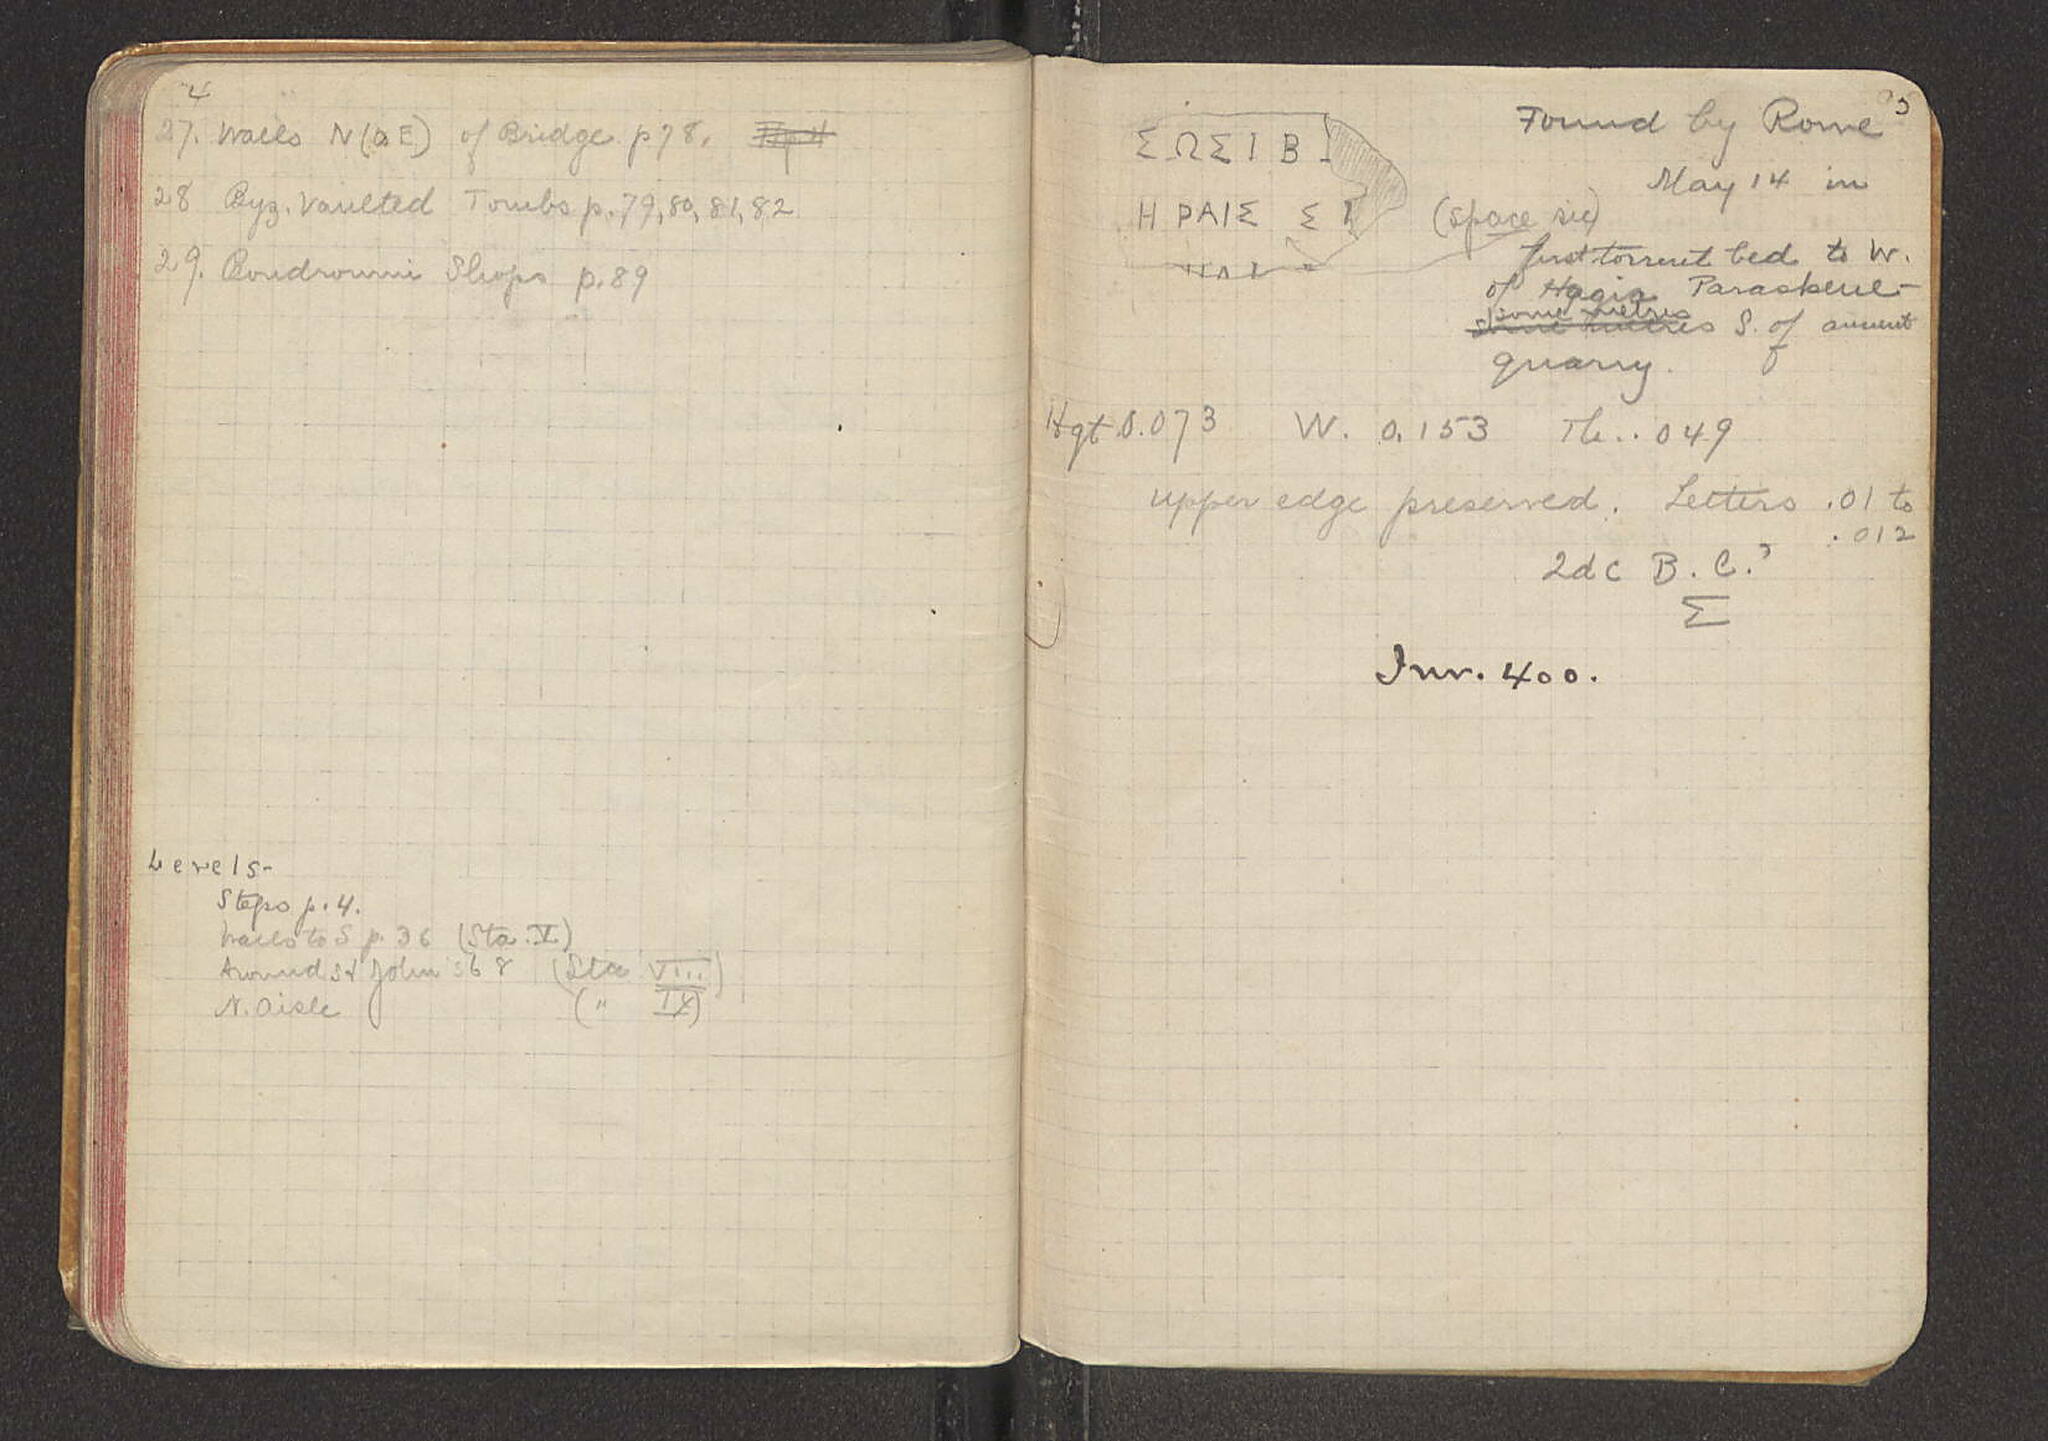 4
27. Walls N (a E) of Bridge p 78.
28 Byz. Vaulted Tombs p. 79, 80, 81, 82
29. Boudroumi Shops p. 89
Levels-
Steps p. 4.
Walls to S p. 36 (Sta. V)
Around St John 8 (Sta VIII)
N. Aisle (" IX)
5
ΣΩΣΙΒ
ΗΡΑΙΣ Σ (space sic)
Found by Rowe
May 14 in
first torrent bed to W.
of Hagia Paraskeve-
some metres S. of ancient
quarry.
Hgt. 0.073 W. 0.153 Th. .049
upper edge preserved. Letters .01 to
.012
2d c B.C.?
Σ
Inv. 400.